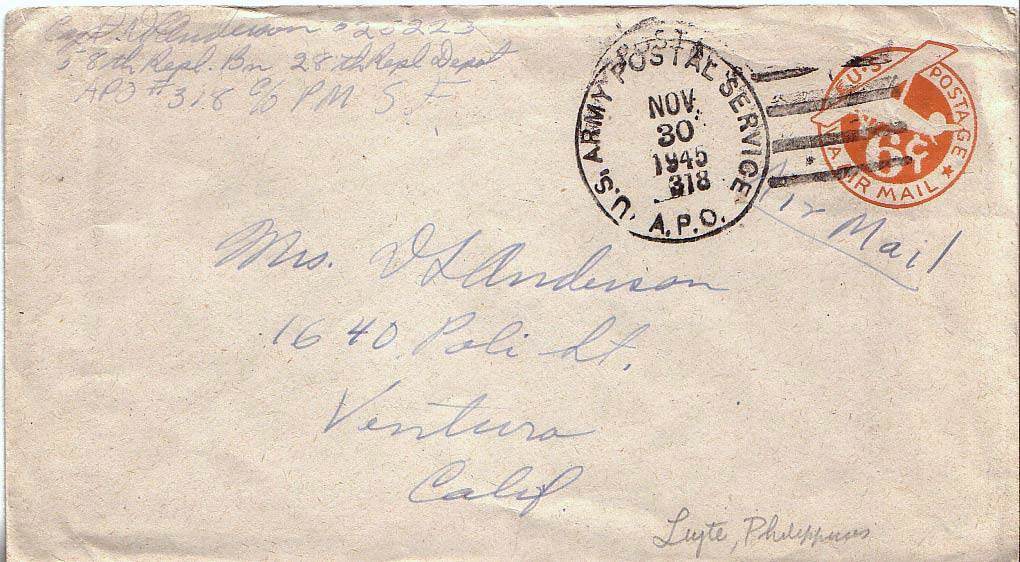 Capt D L Anderson 0 25223
58th Repl. Bn 28th Repl Depot
APO # 318 c/o PM S F
U.S. ARMY POSTAL SERVICE
NOV.
30
1945
318
A.P.O.
U.S. POSTAGE
6¢
VIA AIR MAIL
Air Mail
Mrs. D L Anderson
1640 Poli St.
Ventura
Calif
Luyte, Philippines